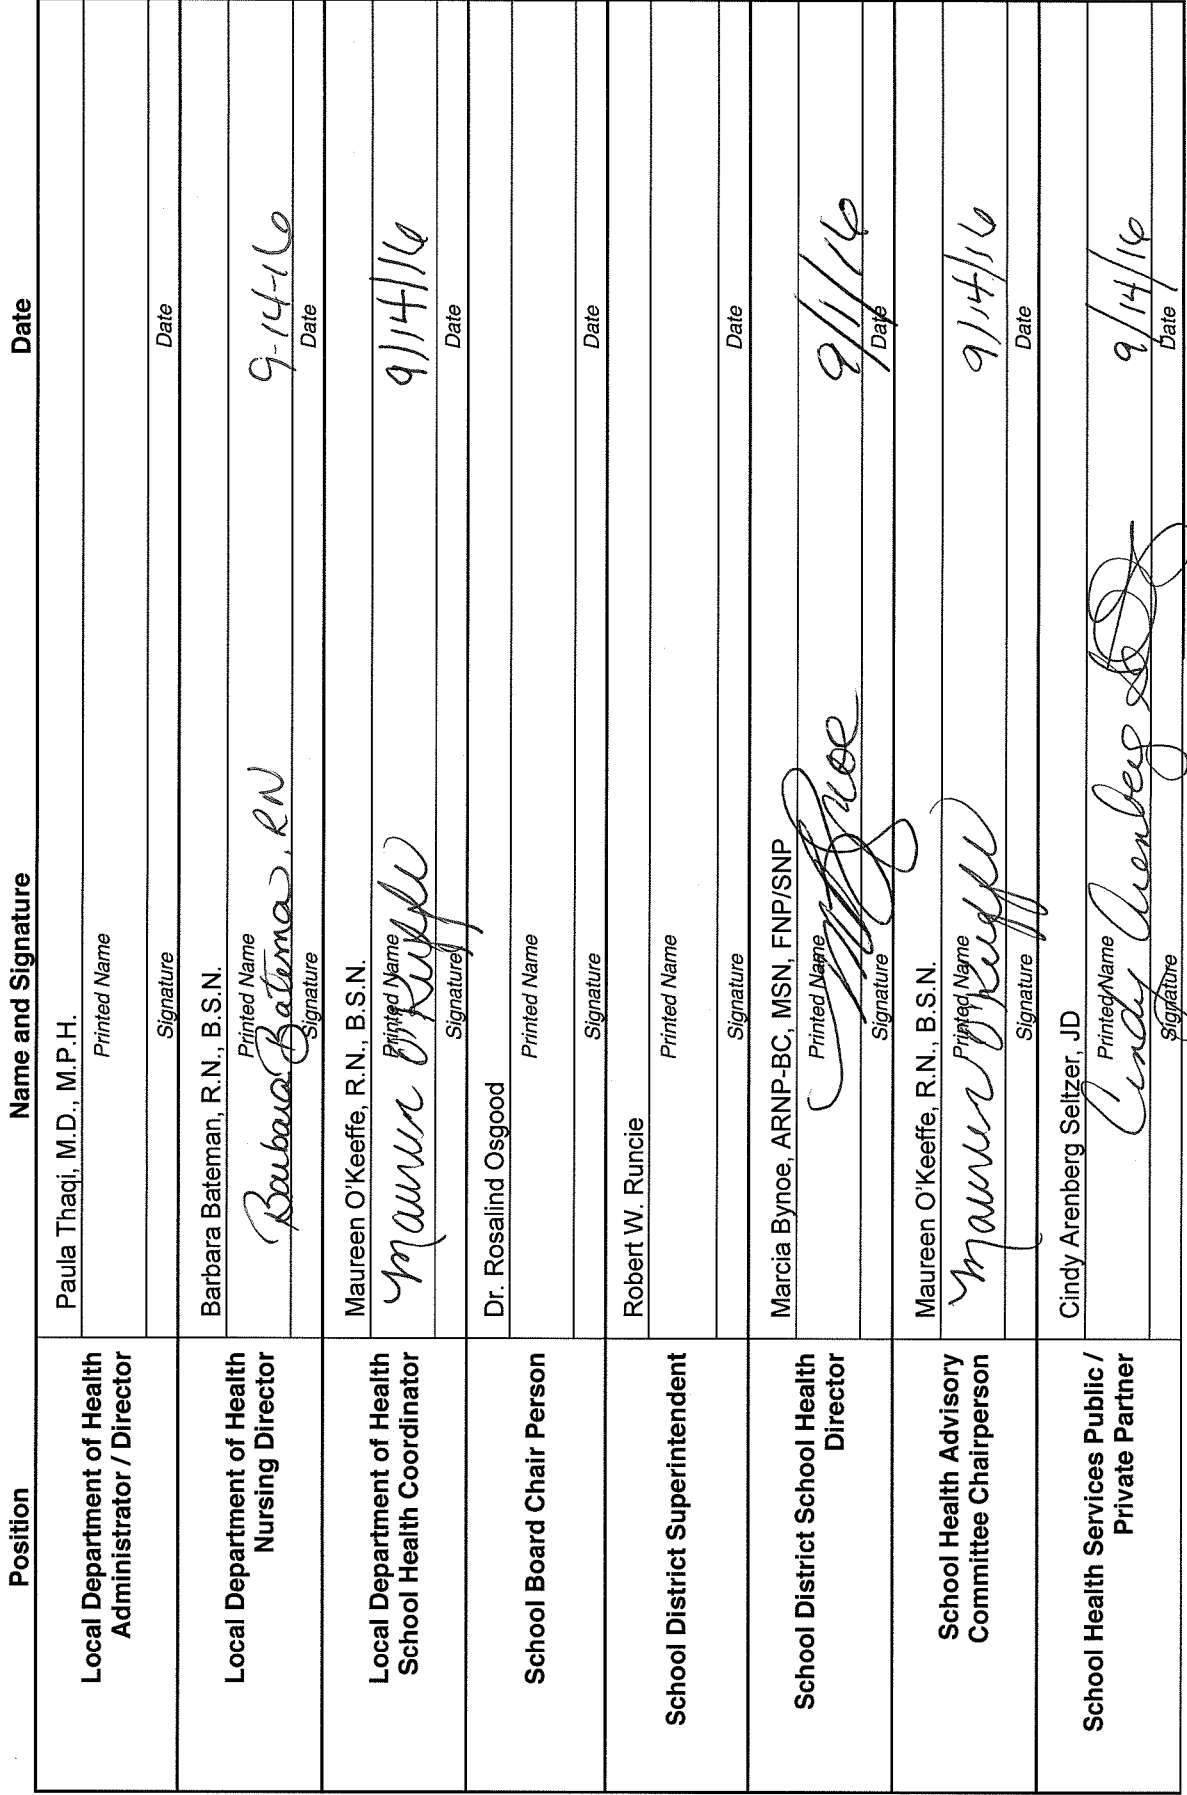 Position
Name and Signature
Date
Local Department of Health
Administrator / Director
Paula Thaqi, M.D., M.P.H.
Printed Name
Signature
Date
Local Department of Health
Nursing Director
Barbara Bateman, R.N., B.S.N.
Printed Name
Barbara Bateman, RN
9-14-16
Signature
Date
Local Department of Health
School Health Coordinator
Maureen O'Keeffe, R.N., B.S.N.
Printed Name
Maureen O'Keeffe
9/14/16
Signature
Date
School Board Chair Person
Dr. Rosalind Osgood
Printed Name
Signature
Date
School District Superintendent
Robert W. Runcie
Printed Name
Signature
Date
School District School Health
Director
Marcia Bynoe, ARNP-BC, MSN, FNP/SNP
Printed Name
MBynoe
9/11/16
Signature
Date
School Health Advisory
Committee Chairperson
Maureen O'Keeffe, R.N., B.S.N.
Printed Name
Maureen O'Keeffe
9/14/16
Signature
Date
School Health Services Public /
Private Partner
Cindy Arenberg Seltzer, JD
Printed Name
Cindy Arenberg
9/14/16
Signature
Date